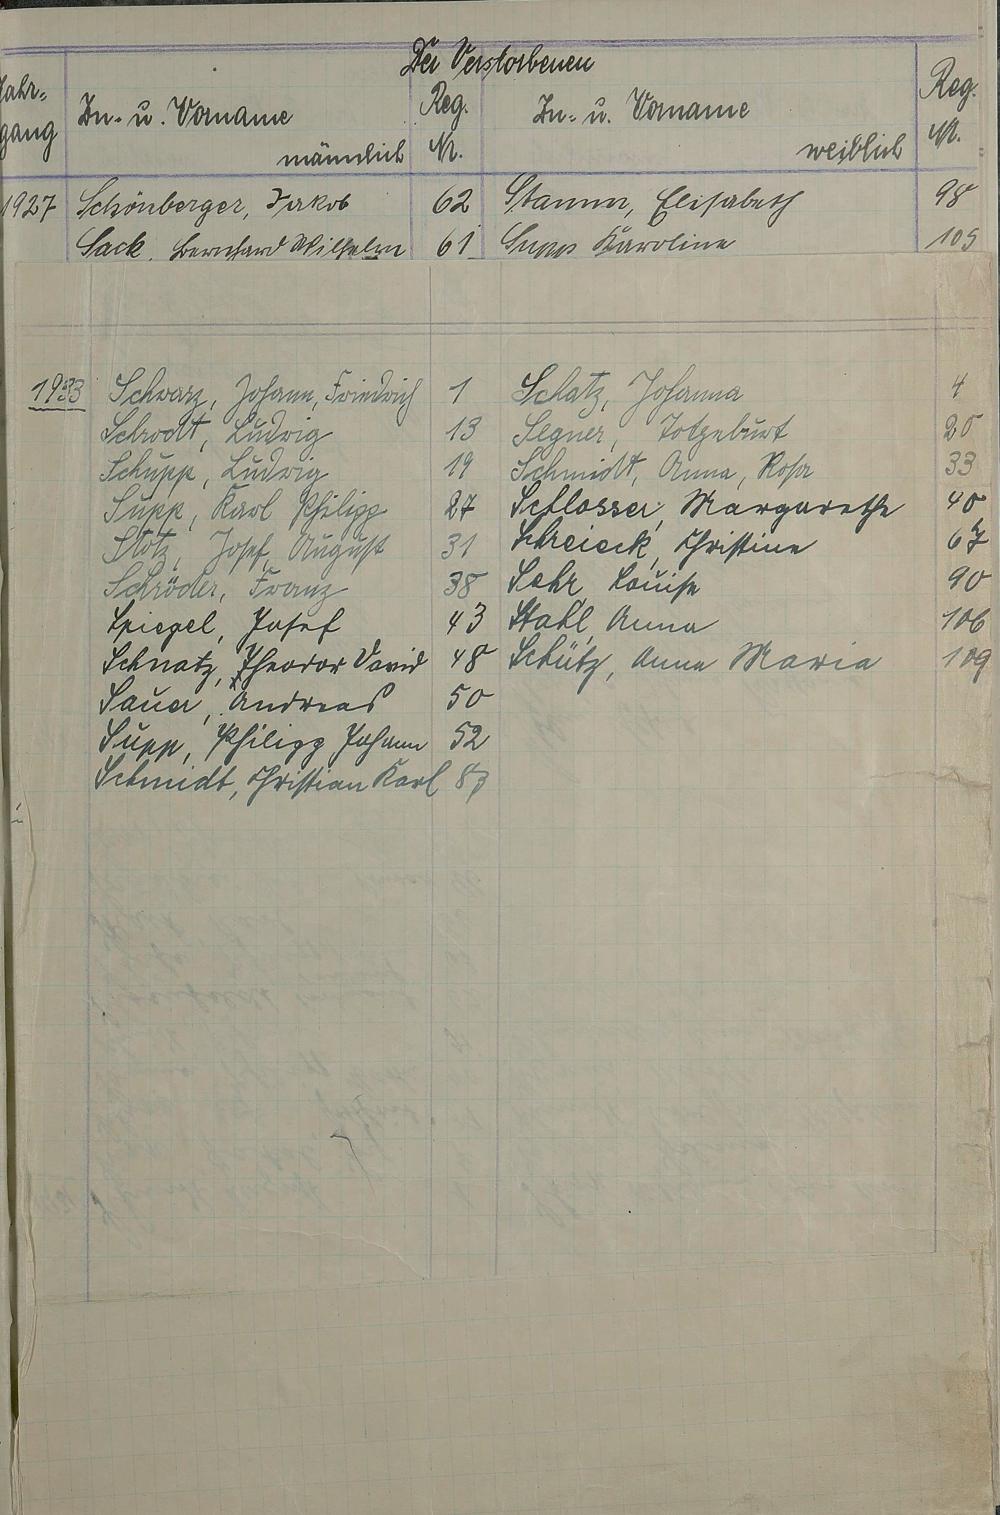 Der Verstorbenen
Jahr- Zu- u. Vorname Reg. Zu- u. Vorname Reg.
gang männlich Nr. weiblich Nr.
1927 Schönberger, Jakob 62 Stamm, Elisabeth 98
Sack, Bernhard Wilhelm 61 Supp Karoline 105
1933 Schwarz, Johann, Friedrich 1 Schatz, Johanna 4
Schrodt, Ludwig 13 Segner, Totgeburt 25
Schupp, Ludwig 19 Schmidt, Anna, Rosa 33
Supp, Karl Philipp 27 Schlosser, Margarethe 40
Stotz, Josef, August 31 Schreieck, Christine 67
Schröder, Franz 38 Sehr, Louise 90
Spiegel, Josef 43 Stahl, Anna 106
Schnatz, Theodor David 48 Schütz, Anna Maria 109
Sauer, Andreas 50
Supp, Philipp Johann 52
Schmidt, Christian Karl 83